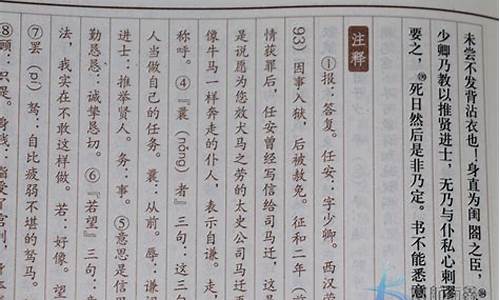 未尝不发背沾衣也！身直为闺閤之臣，㉘
少卿乃教以推贤进士，无乃与仆私心剌谬
要之，㉚死日然后是非乃定。书不能悉意
注释
①报：答复。任安：字少卿。西汉荥
93）因事入狱，后被赦免。征和二年（
情获罪后，任安曾经写信给司马迁，
是说愿为您效犬马之劳的太史公司马迁再
像牛马一样奔走的仆人，表示自谦。走，
称呼。④『曩（nǒng）者』三句：这三句
人当做自己的任务。曩：从前。辱：谦词
进士：推举贤人。务：事。⑤意思是信里
勤恳恳：诚挚恳切。⑥『若望』三句：意
法，我实在不敢这样做。若：好像。望
⑦罢（pí）驽：自比疲弱不堪的驽马。
⑧顾：只是。身残：指受了宫刑，身体